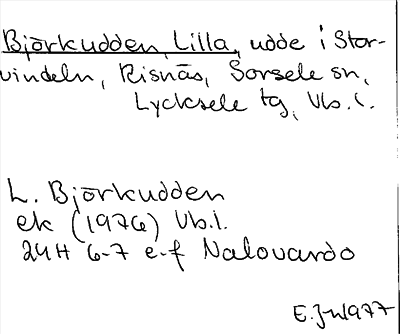 Björkudden, Lilla, udde i Stor-
vindeln, Risnäs, Sorsele sn,
Lycksele tg, Vb. l.
L. Björkudden
ek (1976) Vb. l.
24H 6-7 e-f Nalovardo
E.J-n 1977